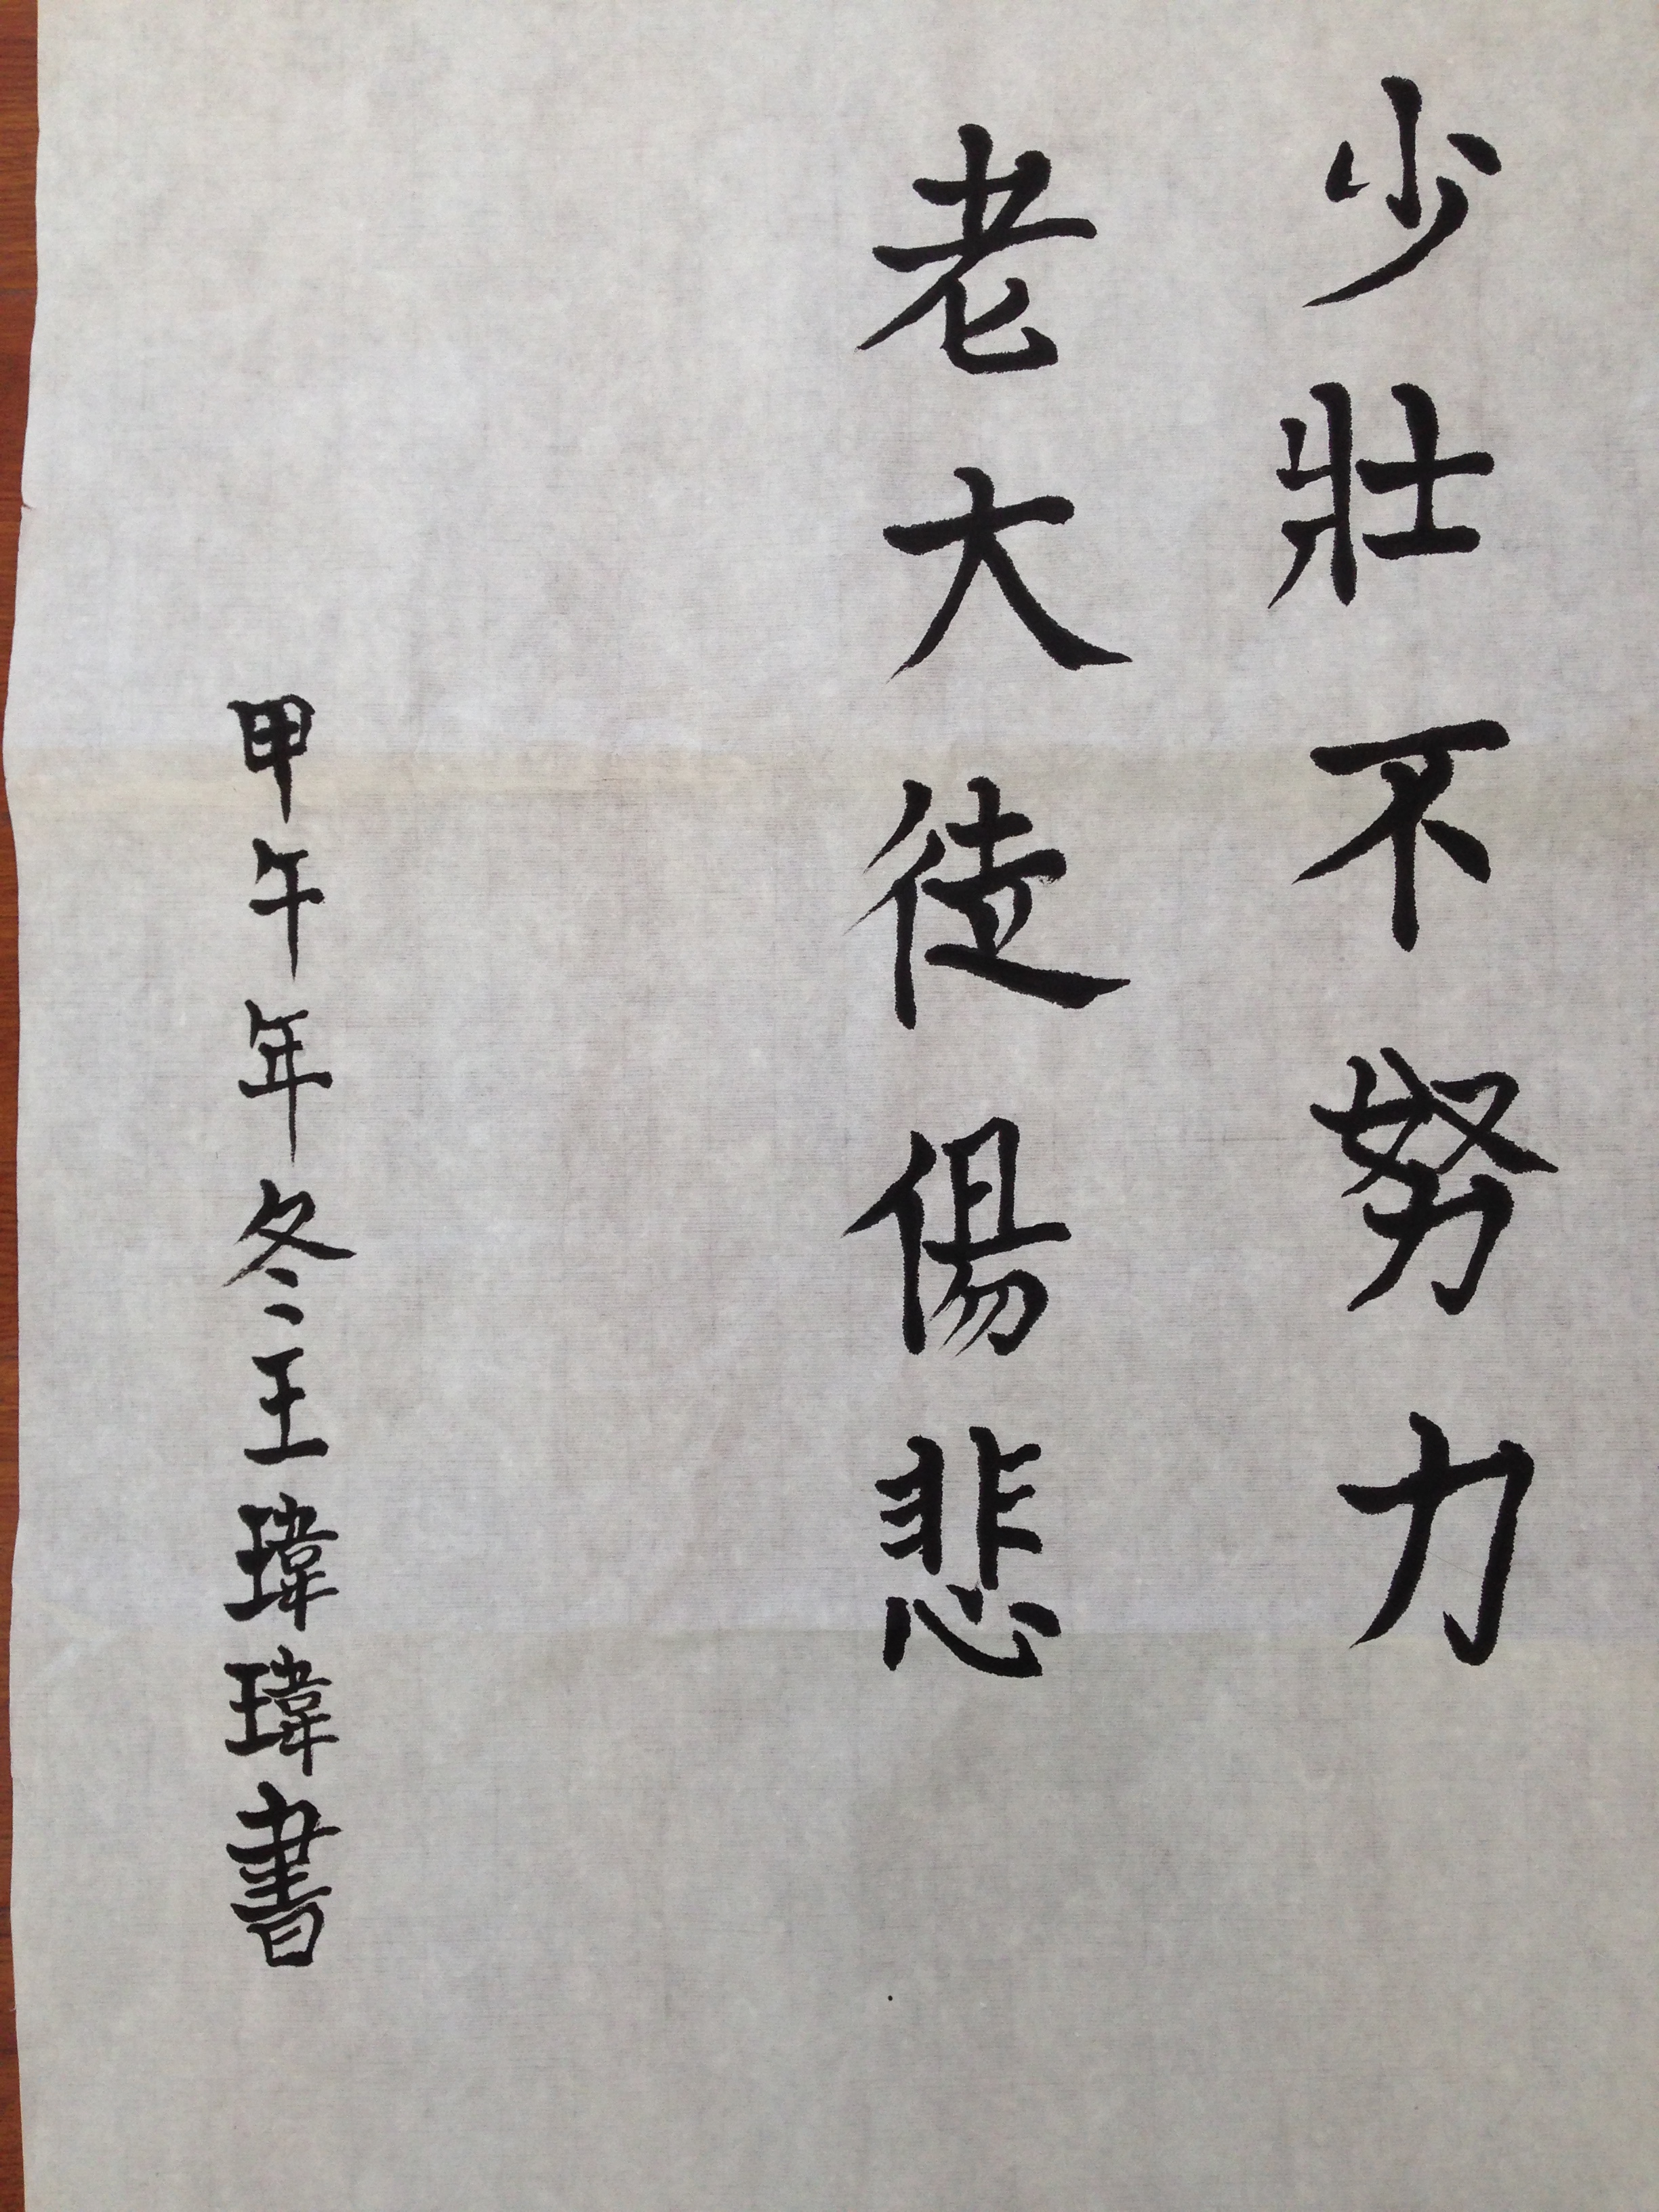 少壯不努力
老大徒傷悲
甲午年冬王瑋瑋書